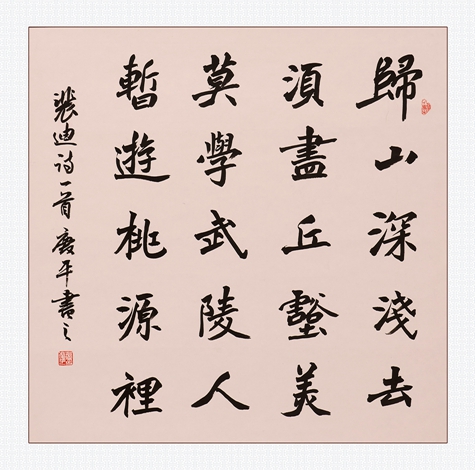 歸山深淺去
須盡丘壑美
莫學武陵人
暫遊桃源裡
裴迪诗一首 平書之